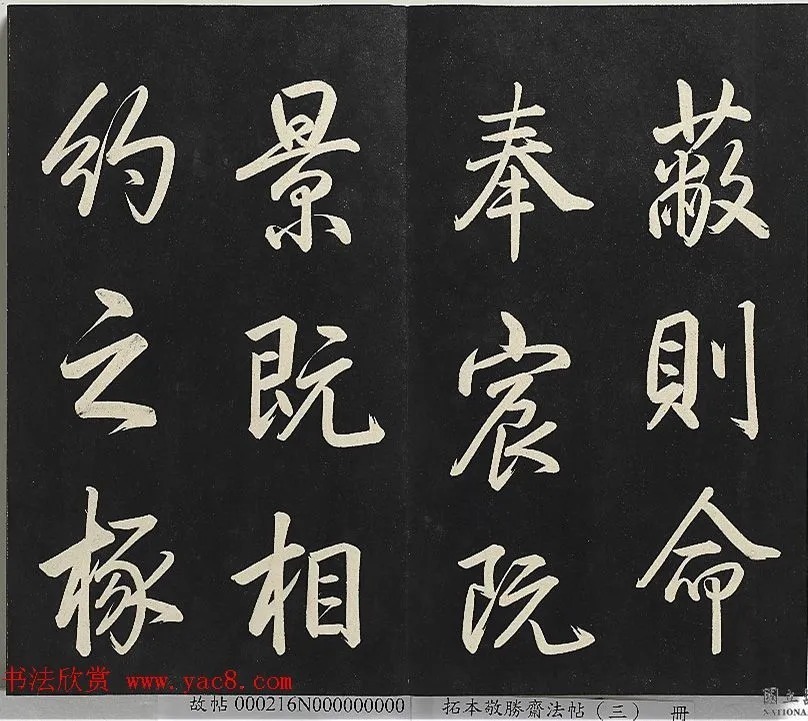 蔽則命
奉宸阮
景既相
約之椽
书法欣赏 www.yac8.com
故帖 000216N000000000
拓本敬勝齋法帖（三） 冊
國立
NATIONA